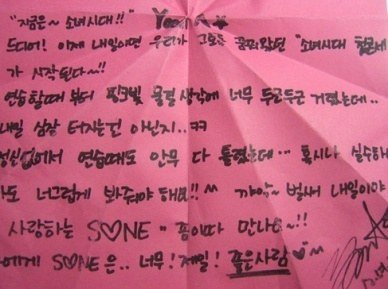 "지금은~ 소녀시대!!" Yoona
드디어! 이제 내일이면 우리가 그토록 꿈꿔왔던 "소녀시대 콘서
가 시작된다~!!
연습할때 부터 핑크빛 물결 생각에 너무 두근두근 거렸는데..
내일 심장 터지는건 아닌지..ㅋㅋ
연습때도 안무 다 틀렸는데… 혹시나 실수해
도 너그럽게 봐줘야 해요!! ^^ 꺄악~ 벌써 내일이야
사랑하는 S♡NE 만나요~!!
에게 S♡NE은.. 너무! 제일! 좋은사람♡^^